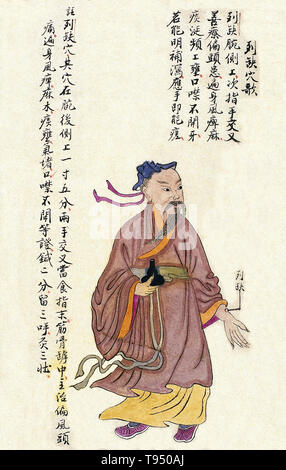 列缺穴歌
列缺腕側上次指手交叉
善療偏頭患遍身風痺麻
痰涎頻上壅口噤不開牙
若能明補瀉應手即能
註 列缺穴其穴在腕後側上一寸五分兩手交叉當食指末筋骨罅中主治偏風頭
痛遍身風痺麻木痰壅氣堵口噤不開等證鍼二分留三呼灸三壯
列缺
T950AJ